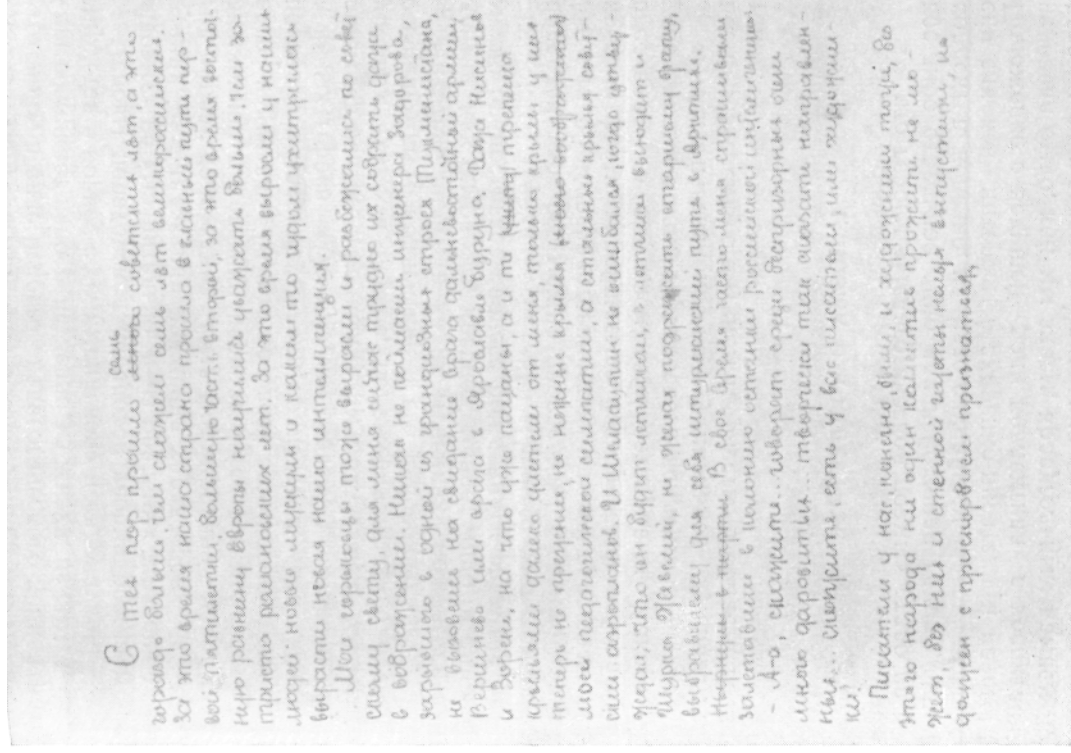 С тех пор прошло семь советских лет, а это
гораздо больше, чем скажем семь лет великороссийских.
За это время наша страна прошла в главные пути пер-
вой пятилетки, большую част. второй, за это время восточ-
ную равнину Европы научились уважать больше, чем за
триста романовских лет. За это время выросли у наших
людей новые мускулы и каким то чудом ухитрилась
вырасти новая наша интеллигенция.
Мои горьковцы тоже выросли и разбежались по совет-
скому свету, для меня сейчас трудно их собрать даже
в воображении. Никак не поймаешь инженера Задорова,
зарытого в одной из грандиозных строек Туркменистана,
не вызовешь на свидание врача дальневосточной армии
Вершнева или врача в Ярославле Буруна. Даже Нисинов
и Зорень, на что уже пацаны, а и те трепеща
крыльями далеко улетели от меня, только крылья у них
теперь не прежние, не нежные крылья
моей педагогической симпатии, а стальные крылья совет-
ских аэропланов. И Шелапутин не ошибался, когда утвер-
ждал, что он будет летчиком; в летчики выходит и
Шурка Жевелий, не желая подражать старшему брату,
выбравшему для себя штурманский путь в Арктике.
В свое время часто меня спрашивали
залетавшие в колонию остатки российской интеллигенции
- А-а, скажите... говорят среди беспризорных очень
много даровитых... творчески так сказать направлен-
ных... Скажите, есть у вас писатели, или художни-
ки?
Писатели у нас, конечно, были, и художники тоже, без
этого народа ни один коллектив прожить не мо-
жет, без них и стенной газеты нельзя выпустить, но
должен с прискорбием признаться,